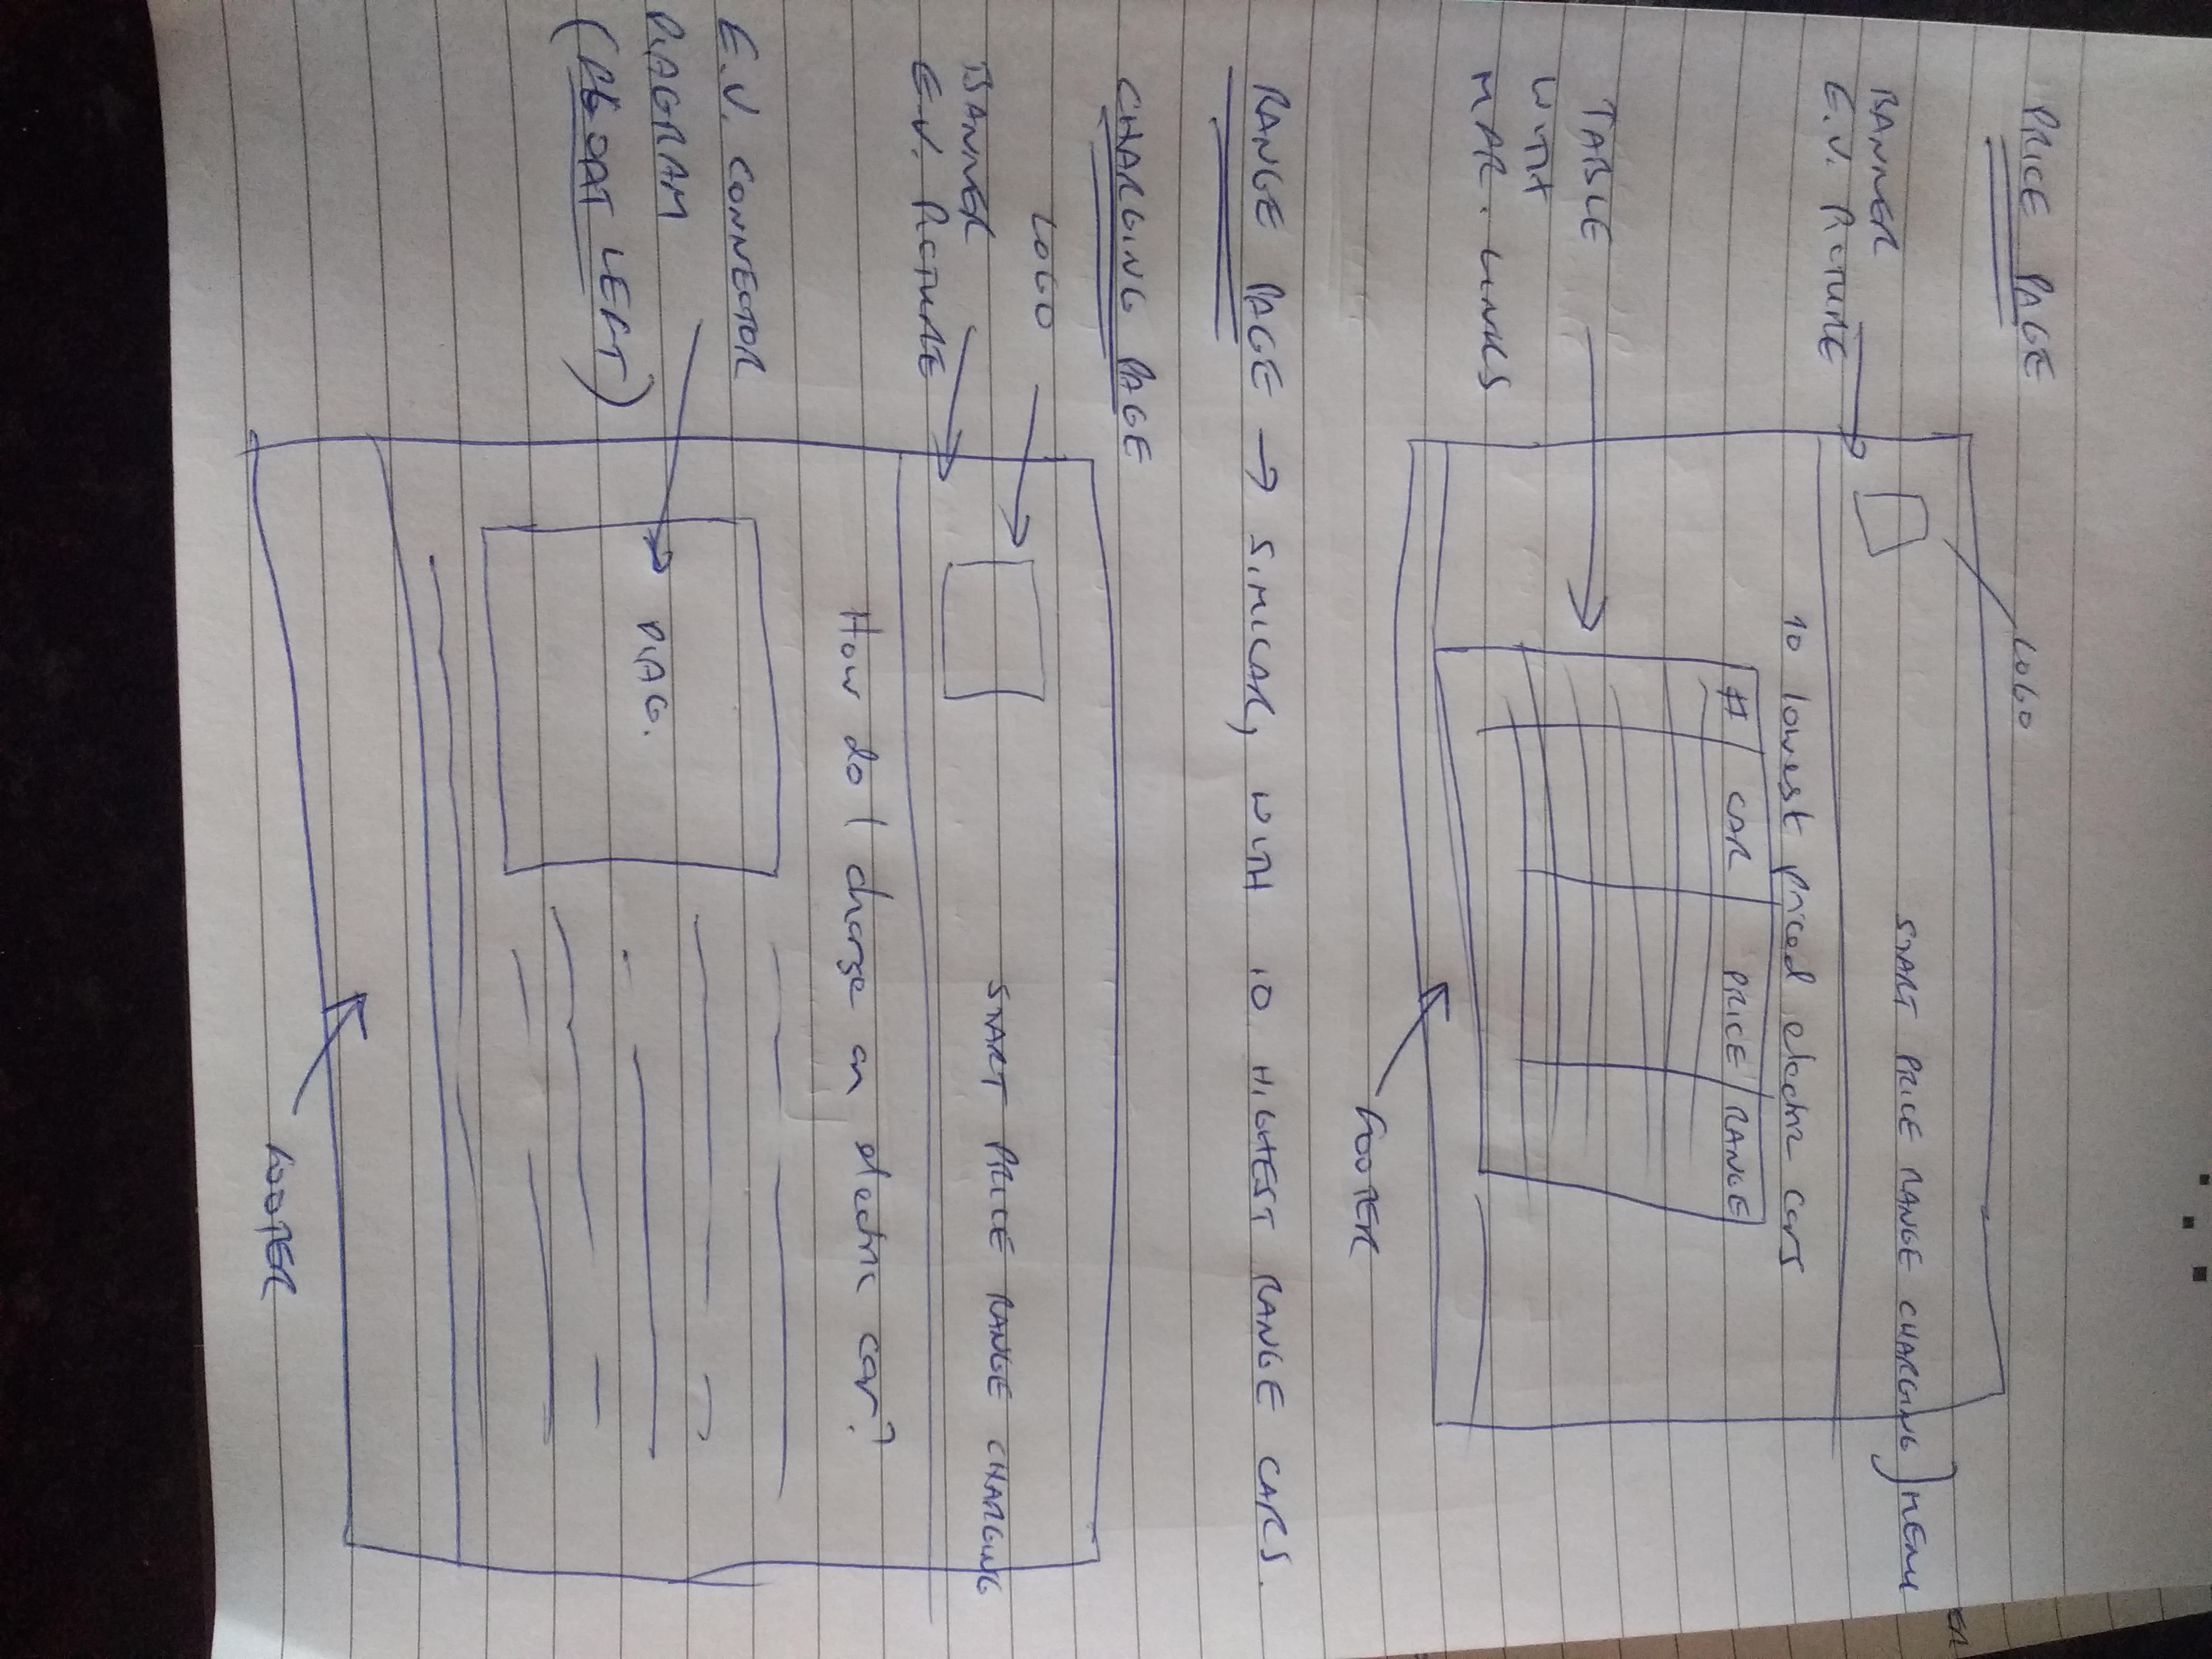 PRICE PAGE
LOGO
BANNER
E.V. PICTURE
START PRICE RANGE CHARGING } MENU
10 lowest priced electric cars
# CAR PRICE RANGE
TABLE
WITH
MAR. LINKS
FOOTER
RANGE PAGE → SIMILAR, WITH 10 HIGHEST RANGE CARS.
CHARGING PAGE
LOGO
BANNER
E.V. PICTURE
START PRICE RANGE CHARGING
How do I charge an electric car?
E.V. CONNECTOR
DIAGRAM
(FLOAT LEFT)
DIAG.
FOOTER